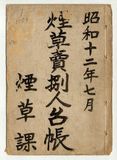 昭和十二年七月
煙草賣捌人台帳
煙草課